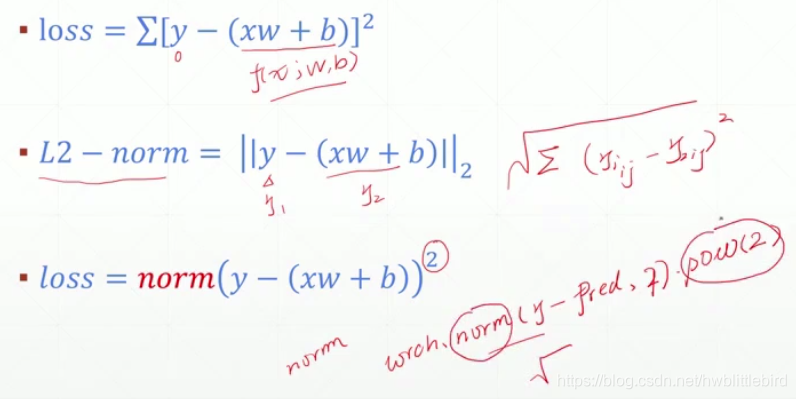 ▪ loss = ∑[y − (xw + b)]²
f(x; w, b)
▪ L2 − norm = ||y − (xw + b)||₂ √∑ (y₁ᵢⱼ − y₂ᵢⱼ)²
y₁ y₂
▪ loss = norm(y − (xw + b))²
norm torch.norm(y − pred, 2).pow(2)
√
https://blog.csdn.net/hwblittlebird